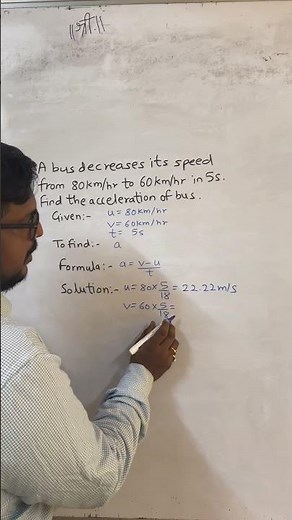 ॥श्री.॥
A bus decreases its speed
from 80km/hr to 60km/hr in 5s.
Find the acceleration of bus.
Given:- u = 80km/hr
v = 60km/hr
t = 5s
To find:- a
Formula:- a = v-u/t
Solution:- u = 80 × 5/18 = 22.22m/s
v = 60 × 5/18 =